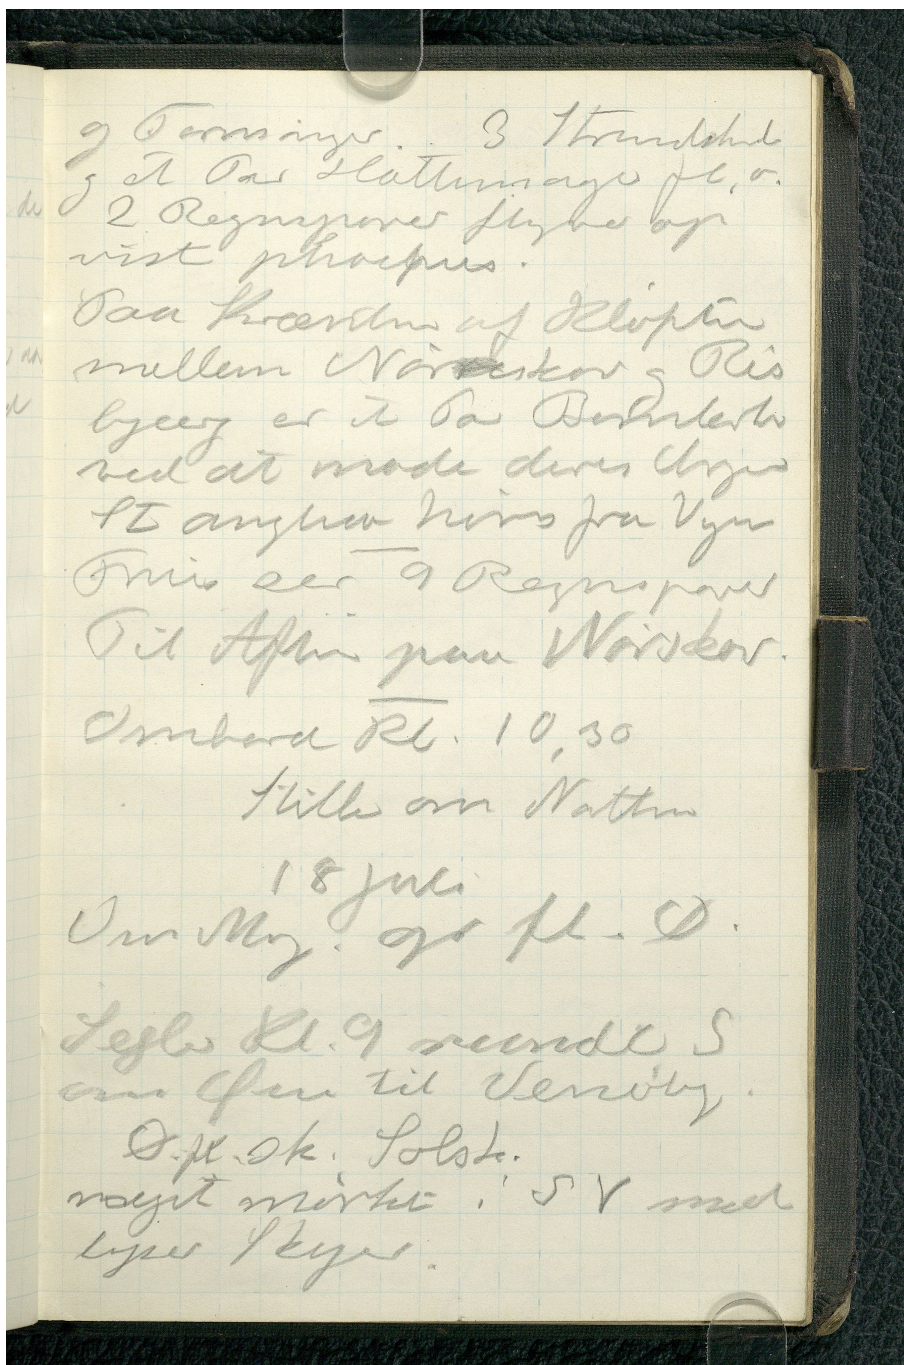 og Tornsanger. . 3 Strandskad
og et Par Hættemaager fl. o.
2 Regnspover flyver op
vist phaeopus.
Paa Skrænten af Kløften
mellem Nørreskov og Ris
bjerg er et Par
ved at made deres Unger
Stanghav hörs fra Vyen
Friis ser 9 Regnspover
Til Aften paa Nørskov.
Ombord Kl. 10,30
Stille om Natten
18 Juli
Om Mrg. gr fl. Ø.
Sejler Kl. 9 rundt S
om Øen til Venöby.
Ø. fl. sk. Solsk.
meget mörkt i SV med
lyse Skyer.